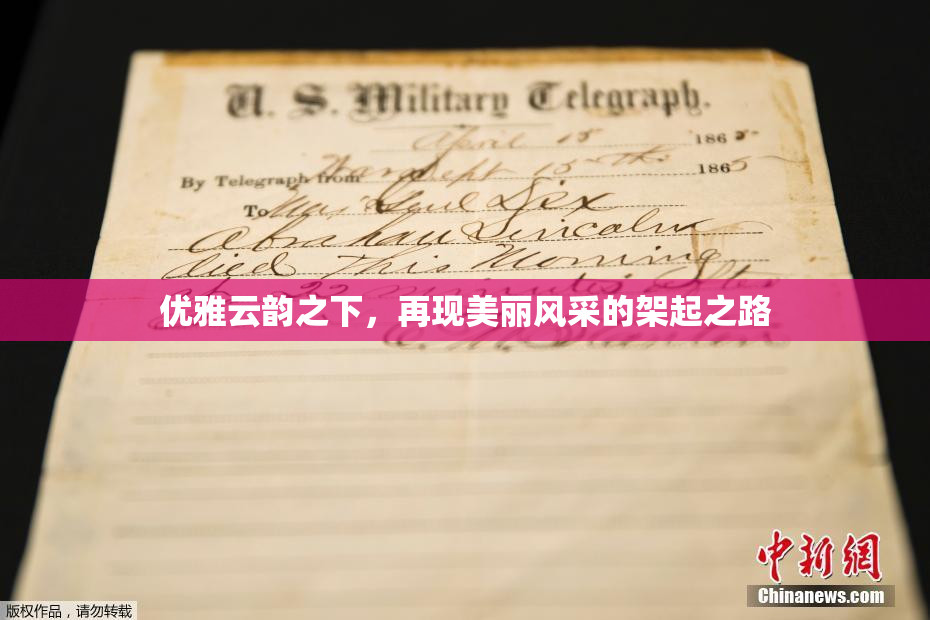 U. S. Military Telegraph.
April 15 1865
By Telegraph from War Dept 15th 1865
To Maj Genl Dix
Abraham Lincoln
died This Morning
at 22 minutes after
优雅云韵之下，再现美丽风采的架起之路
中新網
Chinanews.com
版权作品，请勿转载